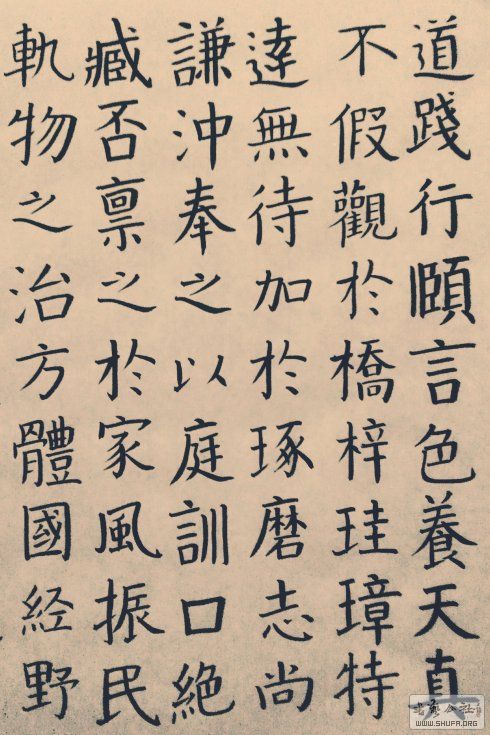 道踐行頤言色養天真
不假觀於橋梓珪璋特
達無待加於琢磨志尚
謙沖奉之以庭訓口絕
臧否禀之於家風振民
軌物之治方體國経野
WWW.SHUFA.ORG